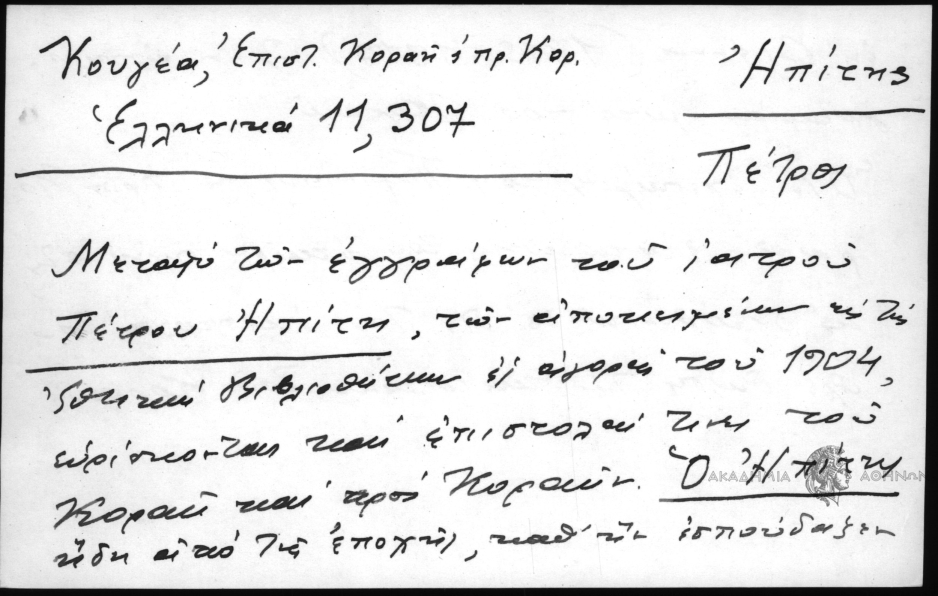 Κουγέα, Ἐπιστ. Κοραῆ & πρ. Κορ.
Ἑλληνικά 11, 307
Ἠπίτης
Πέτρος
Μεταξύ τῶν ἐγγράφων τοῦ ἰατροῦ
Πέτρου Ἠπίτη, τῶν ἀποκειμένων εἰς τὴν
Ἐθνικὴν Βιβλιοθήκην ἐξ ἀγορᾶς τοῦ 1904,
εὑρίσκονται καὶ ἐπιστολαί τινες τοῦ
Κοραῆ καὶ πρὸς Κοραῆν. Ὁ Ἠπίτης
ἤδη ἀπὸ τῆς ἐποχῆς, καθ' ἣν ἐσπούδαζεν
ΑΚΑΔΗΜΙΑ ΑΘΗΝΩΝ